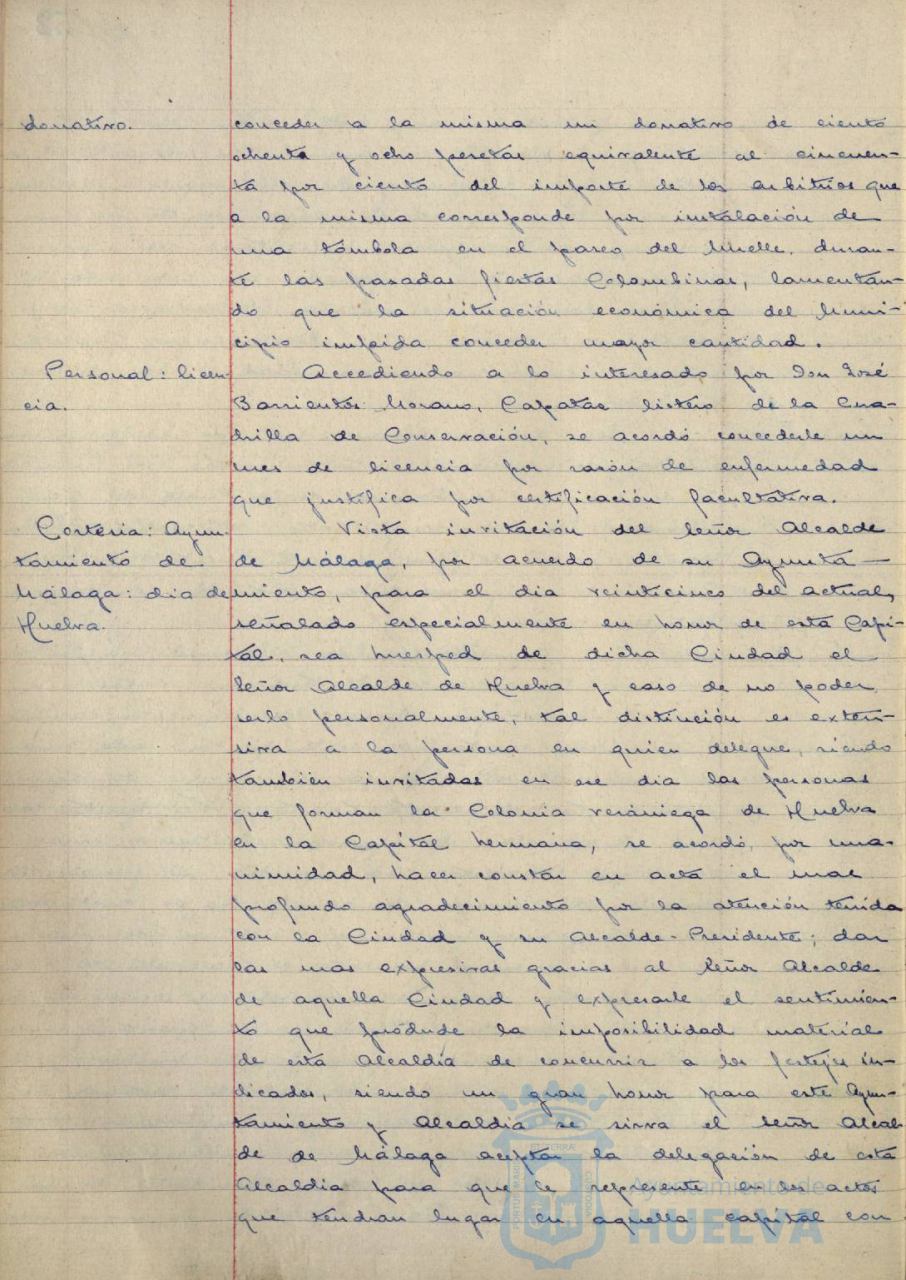 donativo.
conceder a la misma un donativo de ciento
ochenta y ocho pesetas equivalente al cincuen-
ta por ciento del importe de los arbitrios que
a la misma corresponde por instalación de
una tómbola en el paseo del Muelle, duran-
te las pasadas fiestas Colombinas, lamentán-
do que la situación económica del Muni-
cipio impida conceder mayor cantidad.
Personal: licen-
cia.
Accediendo a lo interesado por Don José
Barrientos Morano, Capataz listero de la Cua-
drilla de Conservación, se acordó concederle un
mes de licencia por razón de enfermedad
que justifica por certificación facultativa.
Cortesia: Ayun-
tamiento de
Málaga: dia de
Huelva.
Vista invitación del Señor Alcalde
de Málaga, por acuerdo de su Ayunta-
miento, para el dia veinticinco del actual,
señalado especialmente en honor de esta Capi-
tal, sea huesped de dicha Ciudad el
Señor Alcalde de Huelva y caso de no poder
serlo personalmente, tal distinción es exten-
siva a la persona en quien delegue, siendo
también invitadas en ese dia las personas
que forman la Colonia veraniega de Huelva
en la Capital hermana, se acordó, por una-
nimidad, hacer constar en acta el mas
profundo agradecimiento por la atención tenida
con la Ciudad y su Alcalde-Presidente; dar
las mas expresivas gracias al Señor Alcalde
de aquella Ciudad y expresarle el sentimien-
to que produce la imposibilidad material
de esta Alcaldía de concurrir a los festejos in-
dicados, siendo un gran honor para este Ayun-
tamiento y Alcaldía se sirva el Señor Alcal-
de de Málaga aceptar la delegación de esta
Alcaldía para que le represente en los actos
que tendran lugar en aquella capital con
Ayuntamiento de
HUELVA